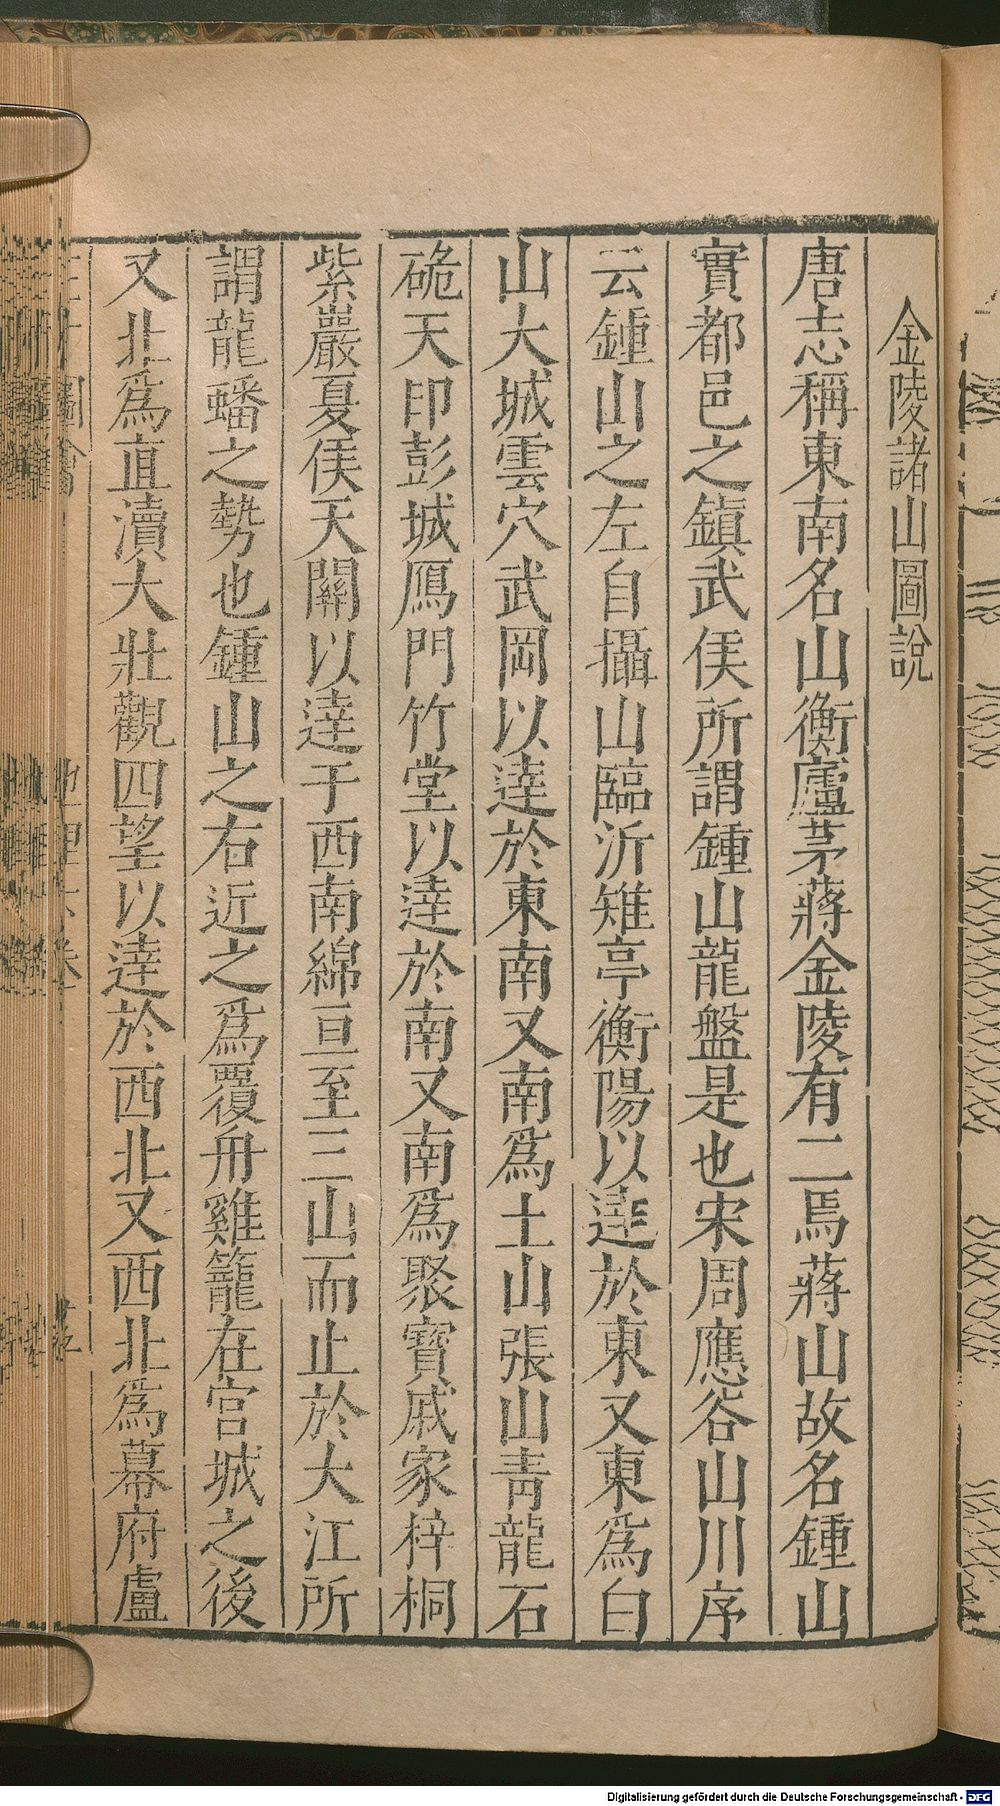 金陵諸山圖說
唐志稱東南名山衡廬茅蔣金陵有二焉蔣山故名鍾山
實都邑之鎮武侯所謂鍾山龍盤是也宋周應谷山川序
云鍾山之左自攝山臨沂雉亭衡陽以達於東又東爲白
山大城雲穴武岡以達於東南又南爲土山張山青龍石
硊天印彭城鴈門竹堂以達於南又南爲聚寶戚家梓桐
紫巖夏侯天闕以達于西南綿亘至三山而止於大江所
謂龍蟠之勢也鍾山之右近之爲覆舟雞籠在宮城之後
又北爲直瀆大壯觀四望以達於西北又西北爲幕府盧
Digitalisierung gefördert durch die Deutsche Forschungsgemeinschaft - DFG